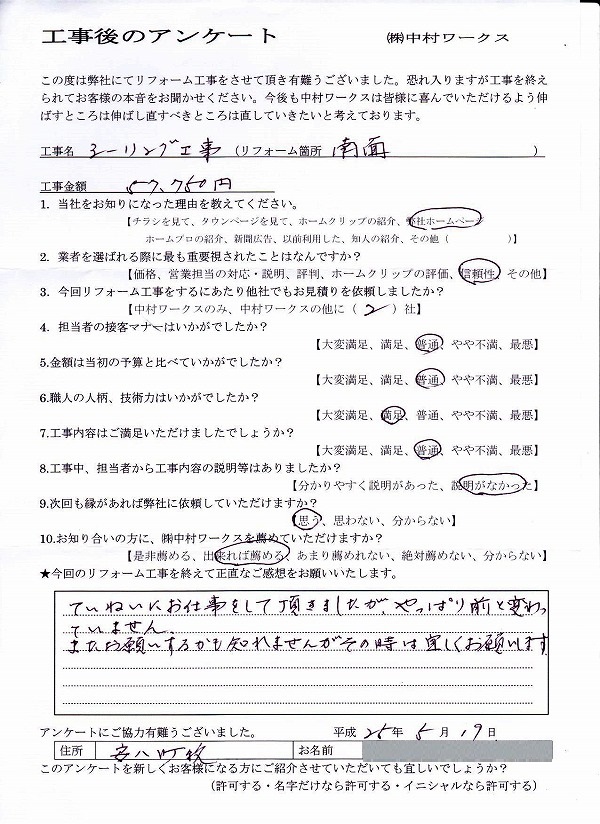 工事後のアンケート ㈱中村ワークス
この度は弊社にてリフォーム工事をさせて頂き有難うございました。恐れ入りますが工事を終え
られてお客様の本音をお聞かせください。今後も中村ワークスは皆様に喜んでいただけるよう伸
ばすところは伸ばし直すべきところは直していきたいと考えております。
工事名 シーリング工事 (リフォーム箇所 南面 )
工事金額 57,750円
1. 当社をお知りになった理由を教えてください。
【チラシを見て、タウンページを見て、ホームクリップの紹介、弊社ホームページ
ホームプロの紹介、新聞広告、以前利用した、知人の紹介、その他( )】
2. 業者を選ばれる際に最も重要視されたことはなんですか?
【価格、営業担当の対応・説明、評判、ホームクリップの評価、信頼性、その他】
3. 今回リフォーム工事をするにあたり他社でもお見積りを依頼しましたか?
【中村ワークスのみ、中村ワークスの他に(2)社】
4. 担当者の接客マナーはいかがでしたか?
【大変満足、満足、普通、やや不満、最悪】
5.金額は当初の予算と比べていかがでしたか?
【大変満足、満足、普通、やや不満、最悪】
6.職人の人柄、技術力はいかがでしたか?
【大変満足、満足、普通、やや不満、最悪】
7.工事内容はご満足いただけましたでしょうか?
【大変満足、満足、普通、やや不満、最悪】
8.工事中、担当者から工事内容の説明等はありましたか?
【分かりやすく説明があった、説明がなかった】
9.次回も縁があれば弊社に依頼していただけますか?
【思う、思わない、分からない】
10.お知り合いの方に、㈱中村ワークスを薦めていただけますか?
【是非薦める、出来れば薦める、あまり薦めれない、絶対薦めない、分からない】
★今回のリフォーム工事を終えて正直なご感想をお願いいたします。
ていねいにお仕事をして頂きましたが、やっぱり前と変わっ
ていません。
またお願いするかも知れませんがその時は宜しくお願いします
アンケートにご協力有難うございました。 平成 25年 5月 19日
住所 安八町牧 お名前
このアンケートを新しくお客様になる方にご紹介させていただいても宜しいでしょうか?
(許可する・名字だけなら許可する・イニシャルなら許可する)